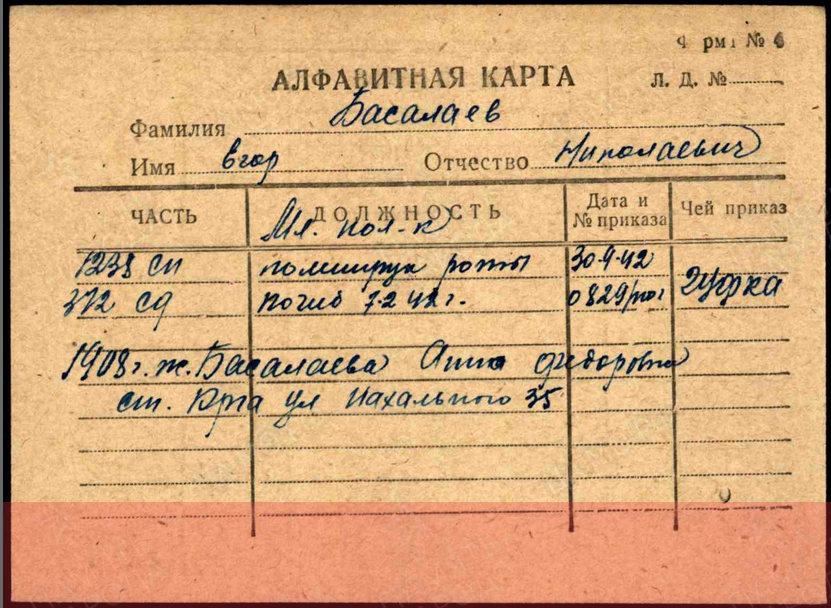 Форма № 6
АЛФАВИТНАЯ КАРТА
Л. Д. №
Фамилия Басалаев
Имя Егор Отчество Николаевич
ЧАСТЬ ДОЛЖНОСТЬ Дата и № приказа Чей приказ
Мл. пол-к
1238 сп политрук роты 30.4.42
372 сд погиб 7.2 42 г. 0829/пог ГУФКА
1908 г. ж. Басалаева Анна Федоровна
ст. Юрга ул Нахального 35